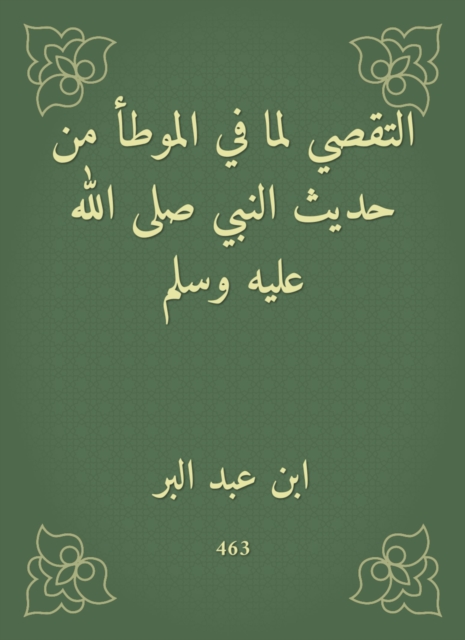 التقصي لما في الموطأ من
حديث النبي صلى الله
عليه وسلم
ابن عبد البر
463